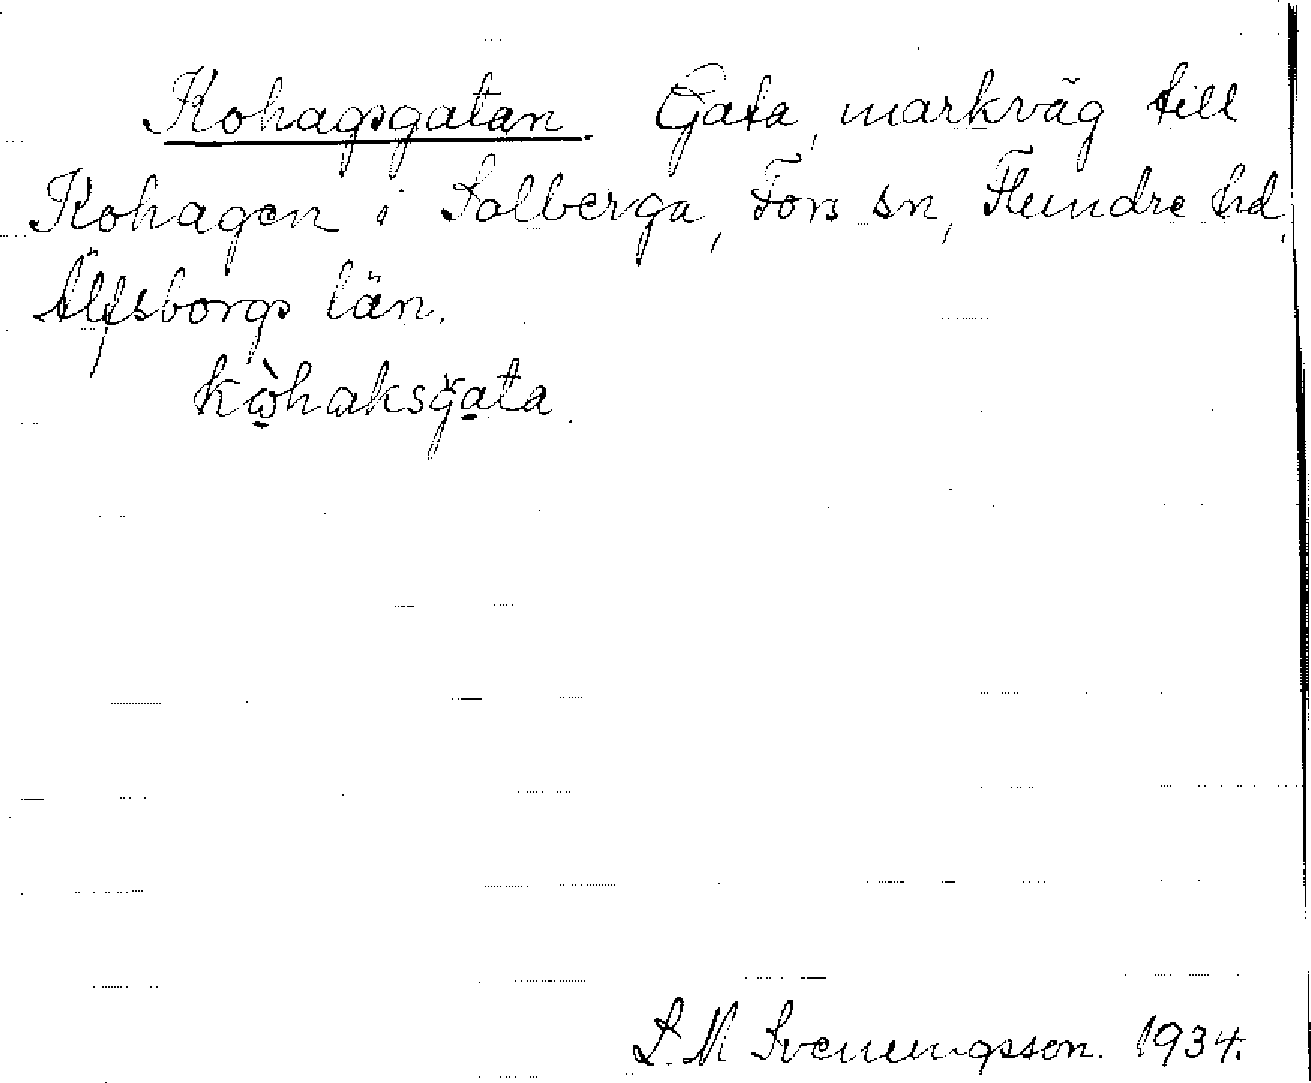 Kohagsgatan. Gata, markväg till
Kohagen i Solberga, Fors sn, Flundre hd,
Älfsborgs län.
kὼhaksgata.
S. M. Svenungsson. 1934.